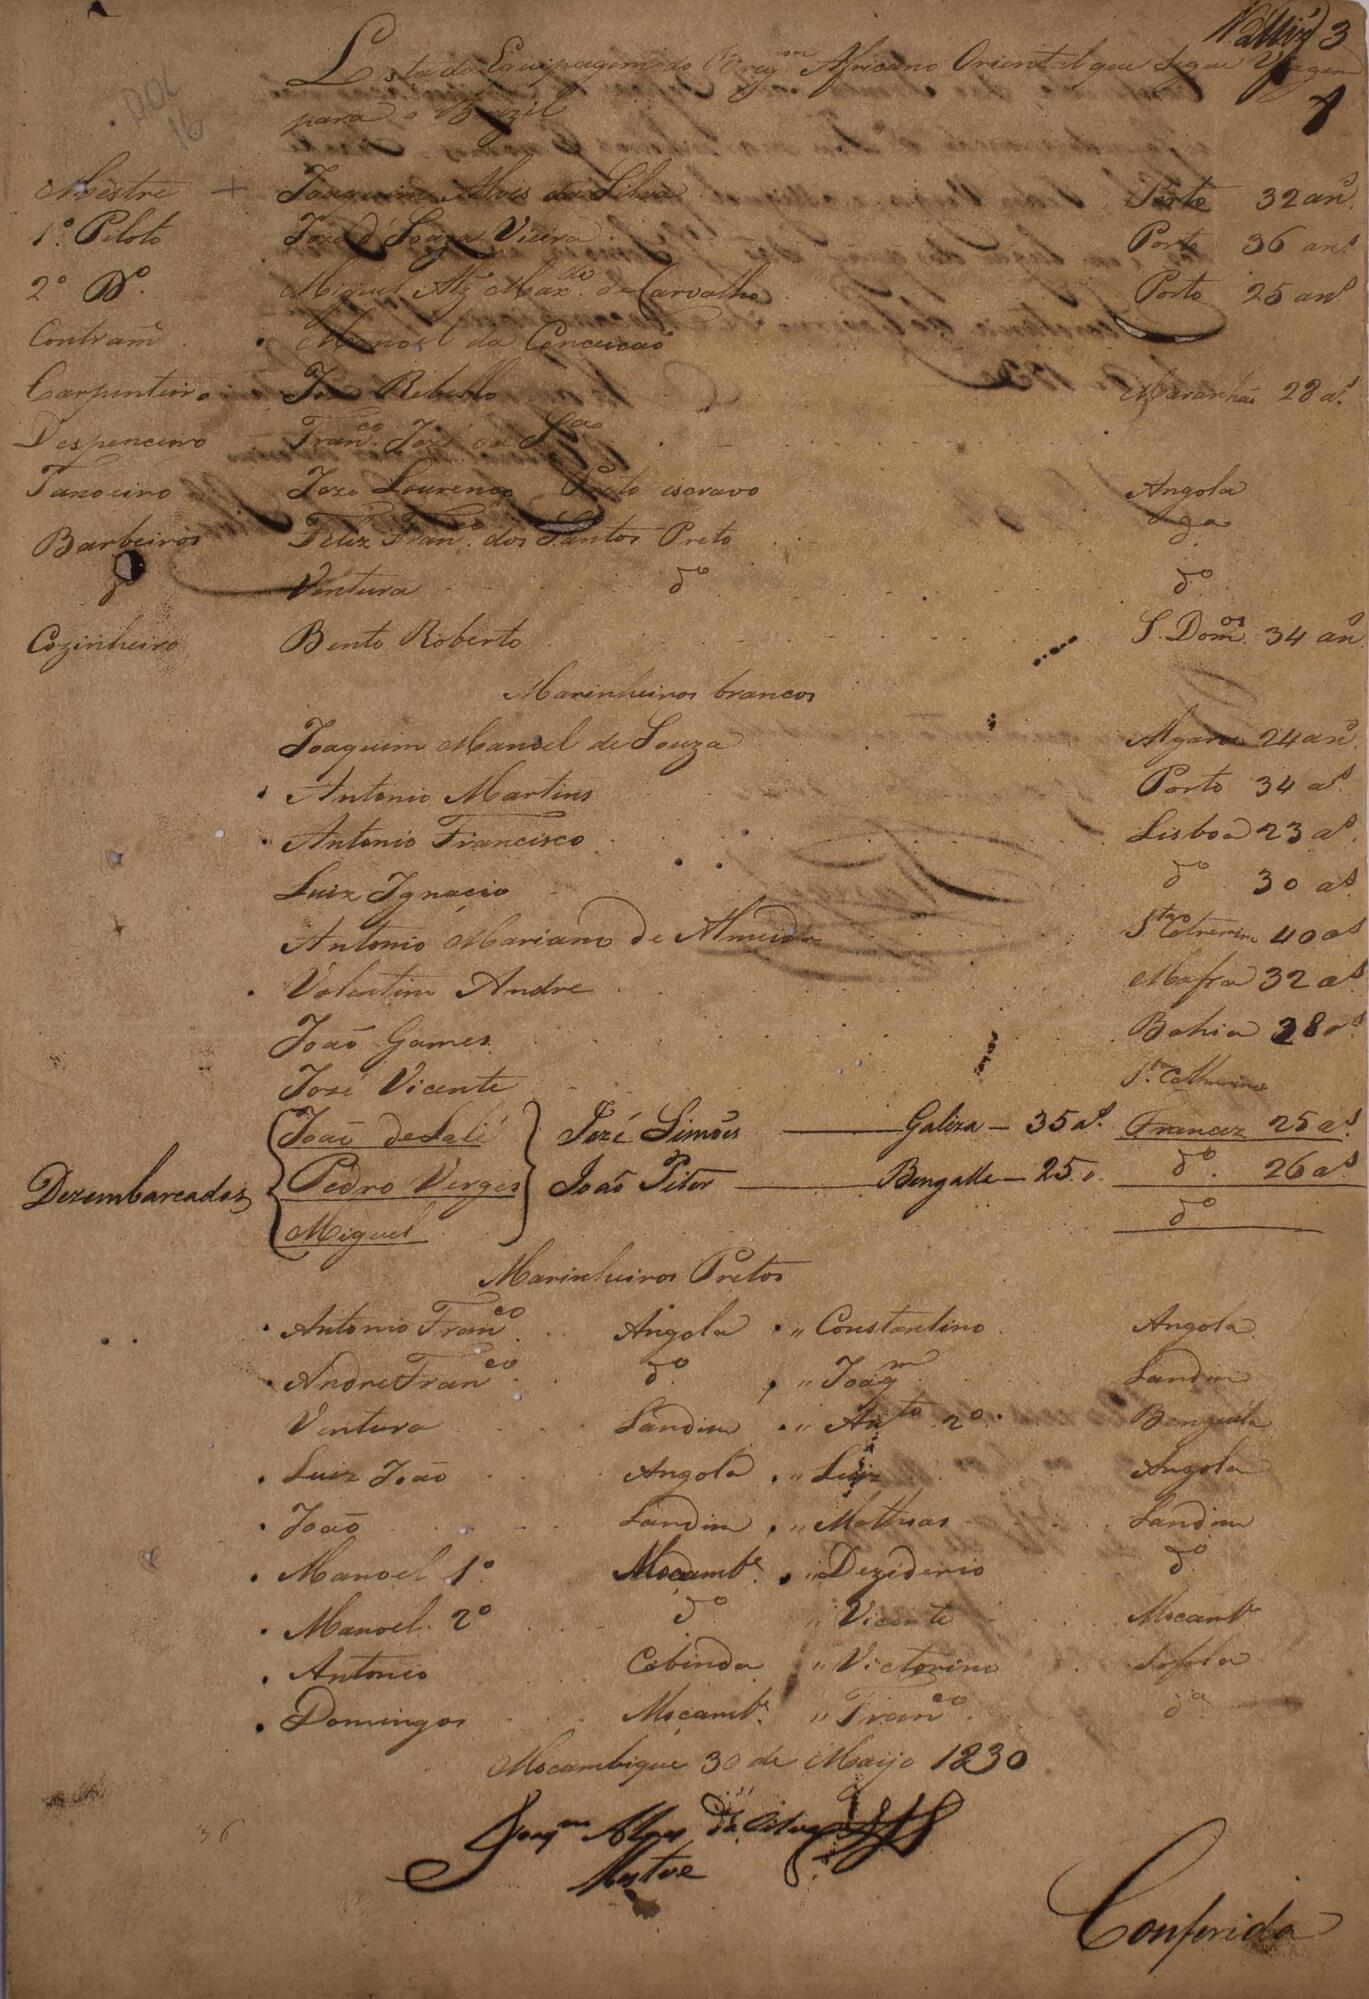 3
Lista da Equipagem do Berg.m Africano Oriental que segue Viagem
para o Brazil
8
DOC
16
Mestre + Joaquim Alvis da Silva Porto 32 an.s
1.º Piloto Joze d'Souza Vieira Porto 36 an.s
2º D.º Miguel de Carvalho Porto 25 an.s
Contram.e Manoel da Conceicaõ
Carpunteiro Joze Rebello Maranhão 28 a.s
Despenceiro Fran.co Jozé da S.a
Tanoeiro Joze Lourenço Preto escravo Angola
Barbeiros Feliz Fran.co dos Santos Preto d.a
d.º Ventura d.º d.º
Cozinheiro Bento Roberto S. Dom.os 34 an.s
Marinheiros brancos
Joaquim Manoel de Souza Algarve 24 an.s
Antonio Martins Porto 34 a.s
Antonio Francisco Lisboa 23 a.s
Luiz Ignacio d.º 30 a.s
Antonio Mariano de Almeida 40 a.s
Valentim Andre Mafra 32 a.s
Joaõ Gomes Bahia 28 a.s
José Vicente S.ta Catherina
João deLali José Simões Galiza 35 a.s Francez 25 a.s
Dezembarcados Pedro Verges João Piter Bengalla 25 d.º 26 a.s
Miguel d.º
Marinheiros Pretos
Antonio Fran.co Angola " Constantino Angola
Andre Fran.co d.º " Joaq.m Landim
Ventura Landim " An.to 2º Benguela
Luiz João Angola " Luiz Angola
João Landim " Mathias Landim
Manoel 1º Moçamb.e " Deziderio d.º
Manoel 2º d.º " Vicente Mocamb.e
Antonio Cabinda " Victorino Sofala
Domingos Moçamb.e " Fran.co d.a
Mocambique 30 de Maijo 1830
Joaq.m Alves da Silva
Mestre
36
Conferida